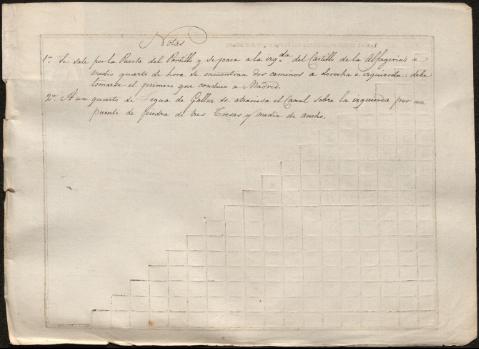 Notas
1ª Se sale por la Puerta del Portillo y se pasa a la izqda del Castillo de la Alfageria: a
medio quarto de hora se encuentran dos caminos a derecha e izquierda: debe
tomarse el primero que conduce a Madrid.
2ª A un quarto de Legua de Gallur se atraviesa el Canal sobre la izquierda por un
puente de piedra de tres Toesas y media de ancho.